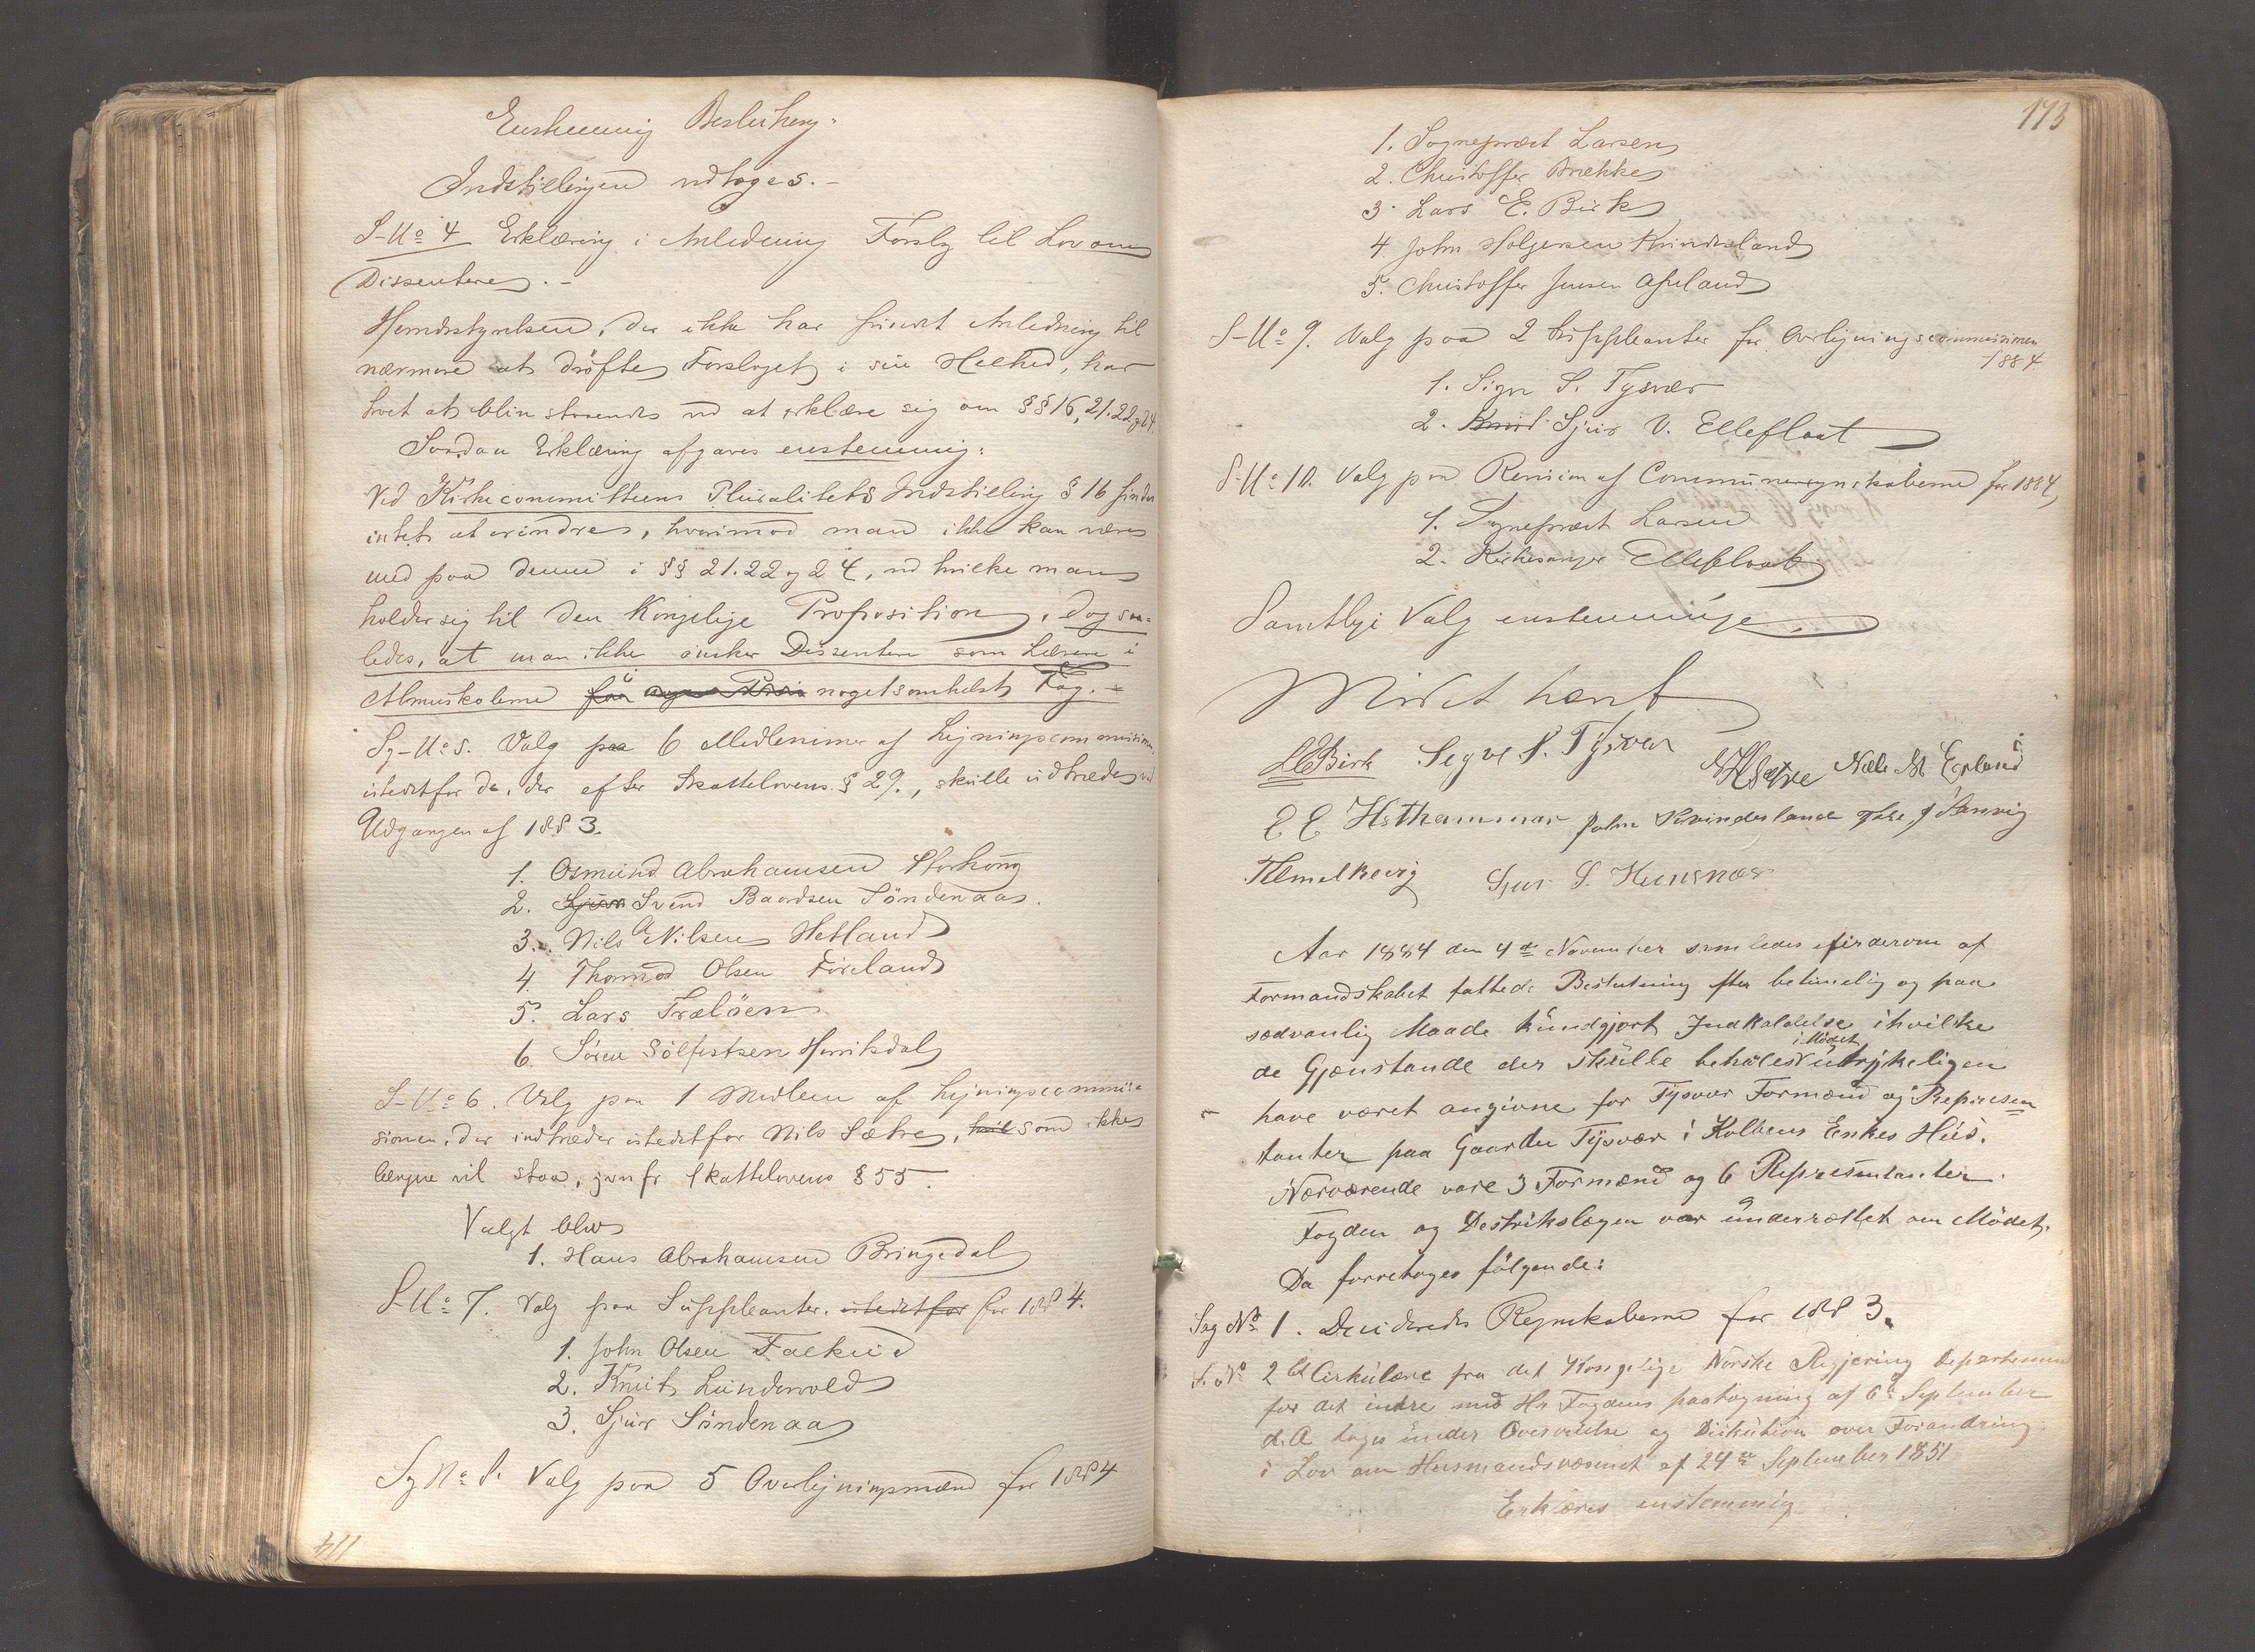 Enstemmig Beslutning:
Indstillingen vedtoges.-
S-No 4 Erklæring i Anledning Forslg til Lov om
Dissentere.-
Herredsstyrelsen, der ikke har fundet Anledning til
nærmere at drøfte Forslaget i sin Helhed, har
troet at blive staaende ved at erklære sig om §§16, 21. 22 og 24.
Saadan Erklæring afgaves enstemmig:
Ved Kirkecommitteens Pluralitets Indstilling § 16 findes
intet at erindre, hvorimod man ikke kan være
med paa denne i §§ 21. 22 og 24, ved hvilke man
holder sig til den Kongelige Proposition, dog saa-
ledes, at man ikke ønsker Dissentere som Lærere i
Almuskolerne i nogetsomhelst Fag.-
Sg-No 5. Valg paa 6 Medlemmer af Ligningscommissionen,
istedetfor de, der efter Skattelovens § 29., skulle udtræde ved
Udgangen af 1883.
1. Osmund Abrahamsen Storkong
2. Svend Baardsen Søndenaas.
3. Nils A Nilsen Hetland
4. Thormod Olsen Føreland
5. Lars Træløen
6. Søren Sølfestsen Henriksdal
S-No 6. Valg paa 1 Medlem af Ligningscommis-
sionen, der indtræder istedetfor Nils Sætre, som ikke
længere vil staa, jvnfr Skattelovens § 55.
Valgt blev
1. Hans Abrahamsen Bringedal
S-No 7. Valg paa Suppleanter. istedetfor for 1884.
1. John Olsen Falkeid
2. Knut Lundervold
3. Sjur Søndenaa
Sg No 8. Valg paa 5 Overligningsmænd for 1884
114
173
1. Sognepræst Larsen
2. Christoffer Brække
3. Lars E. Birk
4. John Holgersen Kvinnesland
5. Christoffer Jensen Apeland
S-No 9. Valg paa 2 Suppleanter for Overligningscommissionen
1884
1. Sign S. Tysvær
2. Knud Sjur V. Ellefloat
S-No 10. Valg paa Revision af Communeregnskaberne for 1884,
1. Sognepræst Larsen
2. Kirkesanger Ellefloat
Samtlige Valg enstemmige.
Mødet hævet
LEBirk Segve S. Tysver NHSætre Nils M Epland
E E Hethammar John Kvindesland J Sanvig
Sjur S. Hunsnæs
Aar 1884 den 4de November samledes efterderom af
Formandskabet fattede Beslutning efter betimelig og paa
sædvanlig Maade kundgjort Indkaldelse ihvilke
de Gjenstande der skulle behøles i Mødet udtrykeligen
have været angivne for Tysvær Formænd og Represen
tanter paa Gaarden Tysvær i Kolbens Enkes Hus.
Nærværende vare 3 Formænd og 6 Representanter.
Fogden og Destrikslægen var underrættet om Mødet.
Da forretoges følgende:
Sag No 1. Decideredes Regnskaberne for 1883.
S. No 2 Et Cirkulære fra det Kongelige Norske Regjering Departement
for det indre med Hr Fogdens paategning af 6te September
d. A. toges under Overveielse og Diskution over Forandring
i Lov om Husmandsvæsenet af 24de September 1851
Erklæres enstemmig